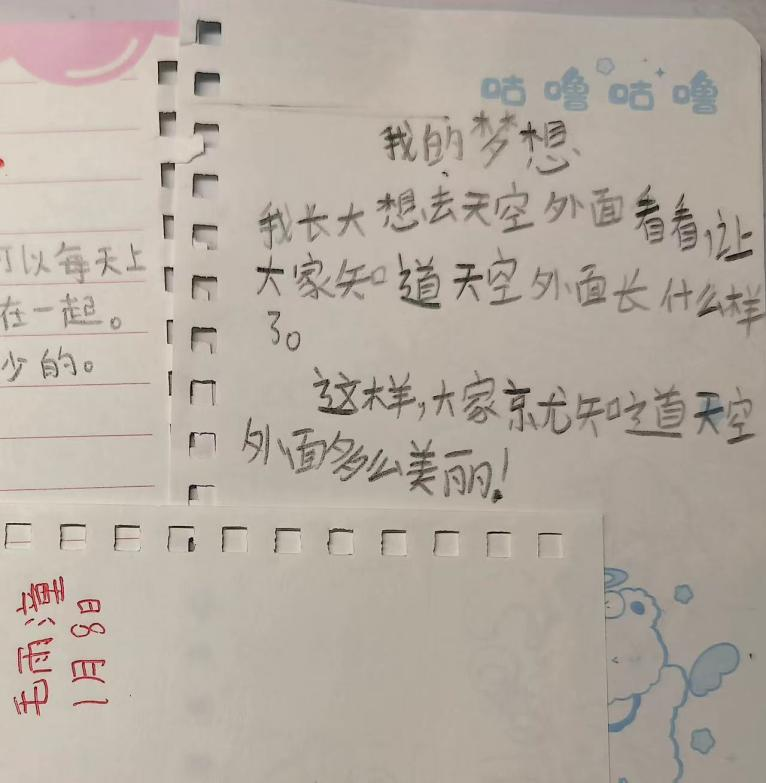 咕噜咕噜
我的梦想
我长大想去天空外面看看,让
大家知道天空外面长什么样
了。
这样,大家就知道天空
外面多么美丽!
可以每天上
在一起。
少的。
毛雨潼
1月8日